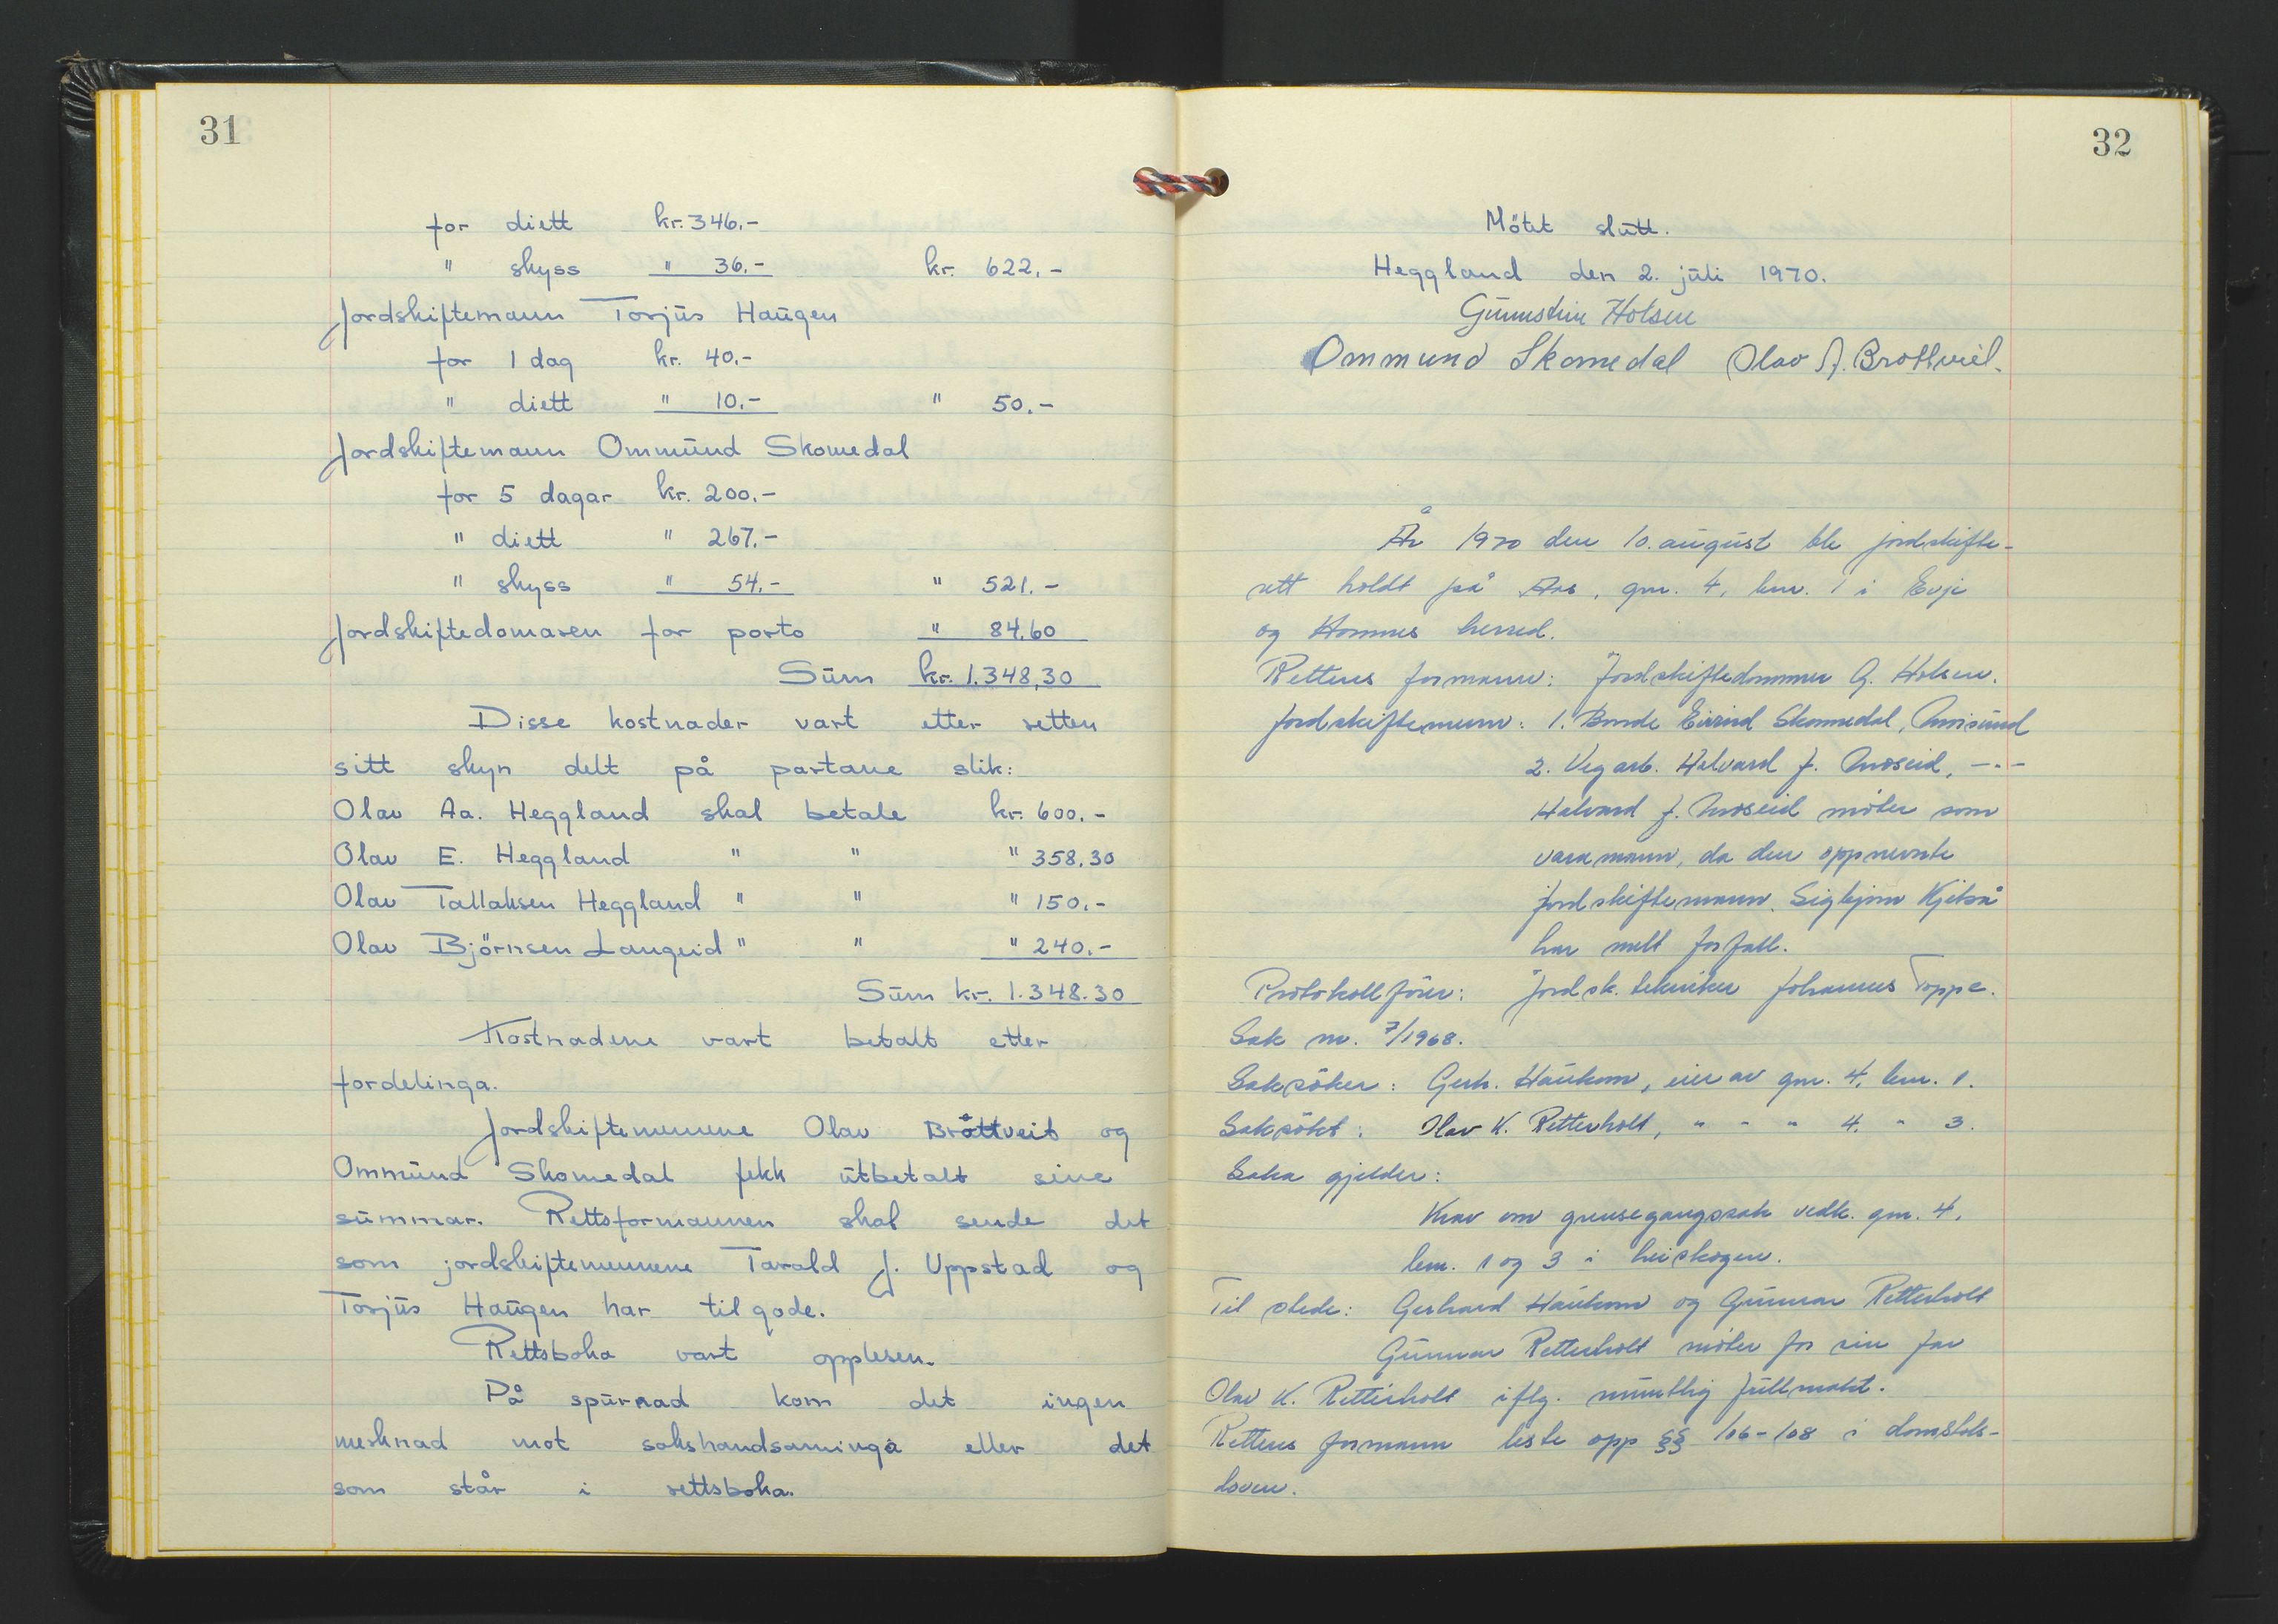 31
for diett kr. 346.-
" skyss " 36.- kr. 622,-
Jordskiftemann Torjus Haugen
for 1 dag kr. 40.-
" diett " 10.- " 50.-
Jordskiftemann Ommund Skomedal
for 5 dagar kr. 200.-
" diett " 267.-
" skyss " 54.- " 521.-
Jordskiftedomaren for porto " 84,60
Sum kr. 1.348,30
Disse kostnader vart etter retten
sitt skyn delt på partane slik:
Olav Aa. Heggland skal betale kr. 600.-
Olav E. Heggland " " " 358,30
Olav Tallaksen Heggland " " " 150.-
Olav Björnsen Langeid " " " 240.-
Sum kr. 1.348.30
Kostnadene vart betalt etter
fordelinga.
Jordskiftemennene Olav Bråttveit og
Ommund Skomedal fekk utbetalt sine
summar. Rettsformannen skal sende det
som jordskiftemennene Tarald J. Uppstad og
Torjus Haugen har til gode.
Rettsboka vart opplesen.
På spurnad kom det ingen
merknad mot sakshandsaminga eller det
som står i rettsboka.
32
Mötet slutt.
Heggland den 2. juli 1970.
Gunnstein Holsen
Ommund Skomedal Olav J. Brottveit.
År 1970 den 10. august ble jordskifte-
rett holdt på Aas, gnr. 4, bnr. 1 i Evje
og Hornnes herred.
Rettens formann: Jordskiftedommer G. Holsen.
Jordskiftemenn: 1. Bonde Eivind Skomedal,
2. Vegarb. Halvard J. Moseid, -"-
Halvard J. Moseid möter som
varamann, da den oppnevnte
jordskiftemann Sigbjörn Kjetså
har meldt forfall.
Protokollförer: Jordsk. tekniker Johannes Toppe.
Sak nr. 7/1968.
Saksöker: Gerh. Haukom, eier av gnr. 4, bnr. 1.
Saksökt: Olav K. Retterholt, " " " 4. " 3.
Saka gjelder:
Krav om grensegangssak vedk. gnr. 4,
bnr. 1 og 3 i heiskogen.
Til stede: Gerhard Haukom og Gunnar Retterholt
Gunnar Retterholt möter for sin far
Olav K. Retterholt iflg. muntlig fullmakt.
Rettens formann leste opp §§ 106-108 i domstols-
loven.